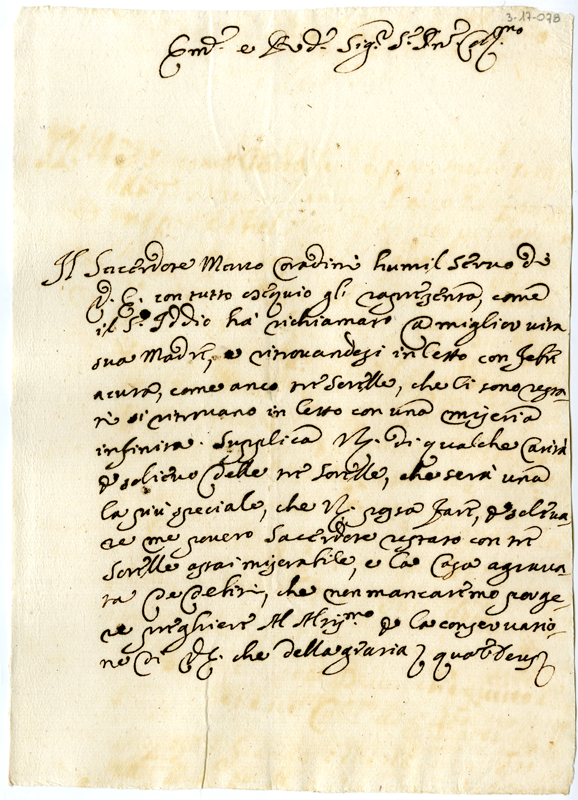 3-17-078
Em.º e Rev.d.º Sig.r S.r P.ne Col.mo
Il Sacerdote Marco Coradini humil servo di
V. E. con tutto osequio gli rapresenta, come
il S.r Iddio ha richiamato a miglior vita
sua Madre, e ritrovandosi in letto con febre
acuta, come anco tre Sorelle, che li sono resta-
te si ritrovano in letto con una miseria
infinita. Supplica V. E. di qualche carità
p solievo delle tre Sorelle, che serà una
la più speciale, che V. E. possa fare, p soleva-
re me povero Sacerdote restato con tre
Sorelle assai miserabile, e la Casa agrava-
ta de debiti, che non mancaremo porge-
re preghiere Al Altis.mo p la conservatio-
ne di V. E. che della gratia quam Deus